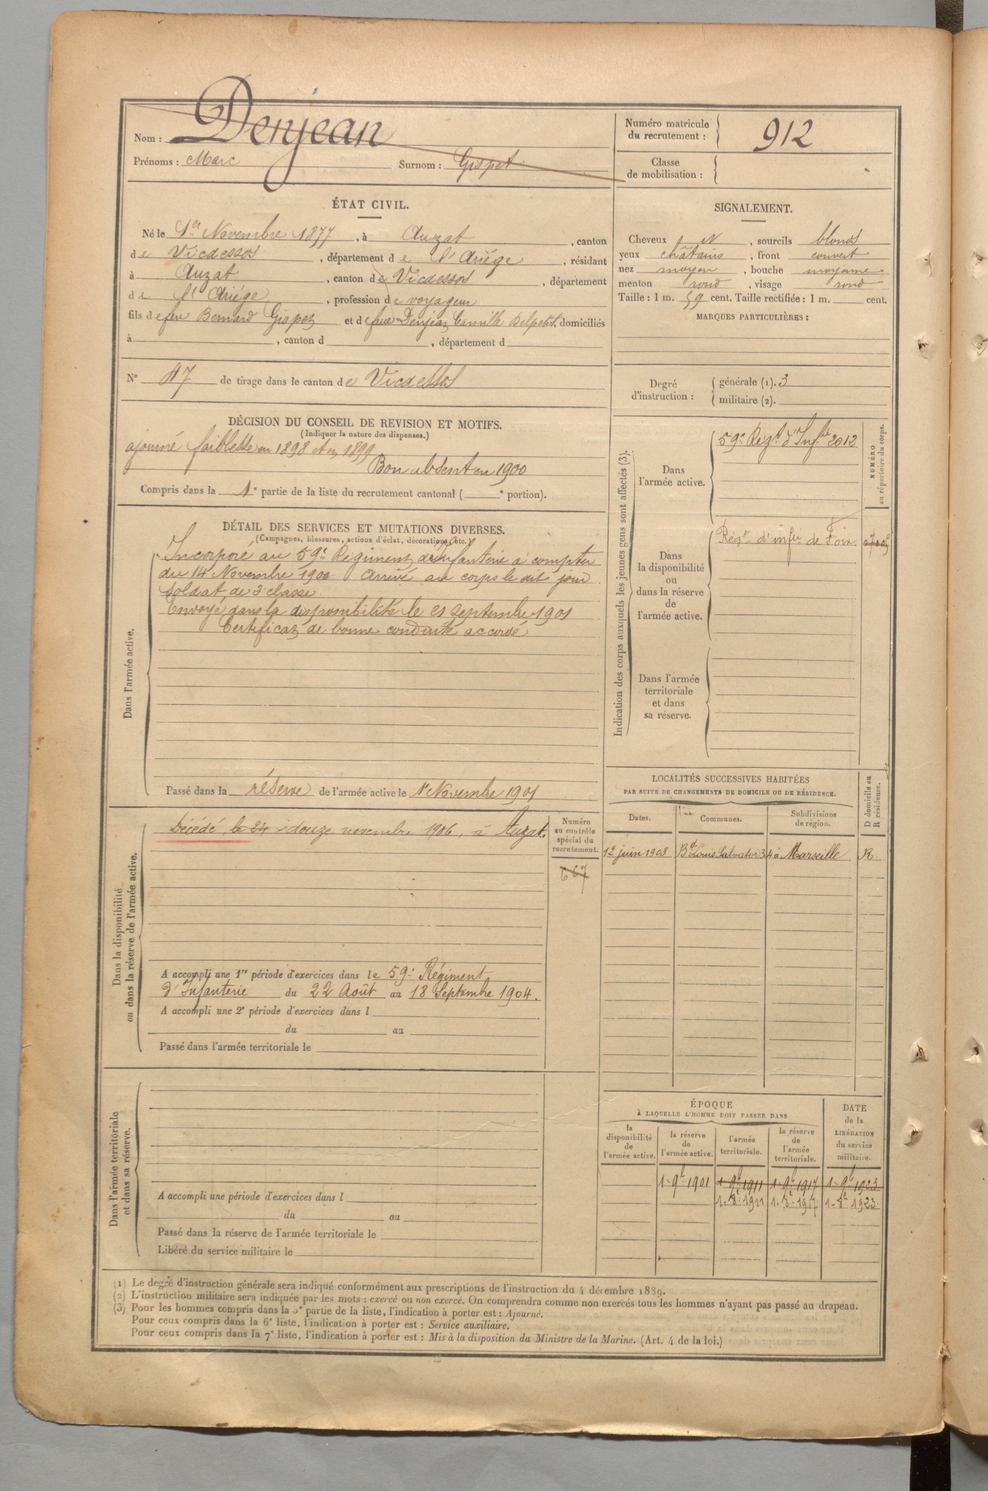 Nom : Denjean
Prénoms : Marc Surnom : Gispet
Numéro matricule du recrutement : 912
Classe de mobilisation :
ÉTAT CIVIL.
Né le 1er Novembre 1877, à Auzat, canton
de Vicdessos, département de l'Ariége, résidant
à Auzat, canton de Vicdessos, département
de l'Ariége, profession de voyageur
fils de feu Bernard Gispet et de feue Denjean Camille Delpet, domiciliés
à , canton d , département d
N° 47 de tirage dans le canton de Vicdessos
SIGNALEMENT.
Cheveux et , sourcils blonds
yeux châtains , front couvert
nez moyen , bouche moyenne
menton rond , visage rond
Taille : 1 m. 59 cent. Taille rectifiée : 1 m. cent.
MARQUES PARTICULIÈRES :
Degré d'instruction : générale (1). 3
militaire (2).
DÉCISION DU CONSEIL DE REVISION ET MOTIFS.
(Indiquer la nature des dispenses.)
ajourné faiblesse en 1898 et en 1899
Bon absent en 1900
Compris dans la 1e partie de la liste du recrutement cantonal ( e portion).
DÉTAIL DES SERVICES ET MUTATIONS DIVERSES.
(Campagnes, blessures, actions d'éclat, décorations, etc.)
Dans l'armée active.
Incorporé au 59e Régiment d'infanterie à compter
du 14 Novembre 1900 Arrivé au corps le dit jour
soldat de 2e classe
Envoyé dans la disponibilité le 21 septembre 1901
Certificat de bonne conduite accordé
Passé dans la réserve de l'armée active le 1er Novembre 1901
Indication des corps auxquels les jeunes gens sont affectés (3).
NUMÉRO au répertoire du corps.
Dans l'armée active.
59e Régt d'Infie 2012
Dans la disponibilité ou dans la réserve de l'armée active.
Régt d'infie de Foix
Dans l'armée territoriale et dans sa réserve.
Dans la disponibilité ou dans la réserve de l'armée active.
Décédé le douze novembre 1906, à Auzat.
Numéro au contrôle spécial du recrutement.
A accompli une 1re période d'exercices dans le 59e Régiment
d'Infanterie du 22 Août au 18 Septembre 1904.
A accompli une 2e période d'exercices dans l
du au
Passé dans l'armée territoriale le
LOCALITÉS SUCCESSIVES HABITÉES
PAR SUITE DE CHANGEMENTS DE DOMICILE OU DE RÉSIDENCE.
D domicile ou R résidence.
Dates. Communes. Subdivisions de région.
12 juin 1903 Bd Louis Salvator 34 à Marseille R.
Dans l'armée territoriale et dans sa réserve.
A accompli une période d'exercices dans l
du au
Passé dans la réserve de l'armée territoriale le
Libéré du service militaire le
ÉPOQUE
À LAQUELLE L'HOMME DOIT PASSER DANS
DATE de la LIBÉRATION du service militaire.
la disponibilité de l'armée active. la réserve de l'armée active. l'armée territoriale. la réserve de l'armée territoriale.
1-9e 1901 1-9e 1911 1-9e 1917 1-9e 1923
1-8e 1911 1-8e 1917 1-8e 1923
(1) Le degré d'instruction générale sera indiqué conformément aux prescriptions de l'instruction du 4 décembre 1889.
(2) L'instruction militaire sera indiquée par les mots : exercé ou non exercé. On comprendra comme non exercés tous les hommes n'ayant pas passé au drapeau.
(3) Pour les hommes compris dans la 5e partie de la liste, l'indication à porter est : Ajourné.
Pour ceux compris dans la 6e liste, l'indication à porter est : Service auxiliaire.
Pour ceux compris dans la 7e liste, l'indication à porter est : Mis à la disposition du Ministre de la Marine. (Art. 4 de la loi.)